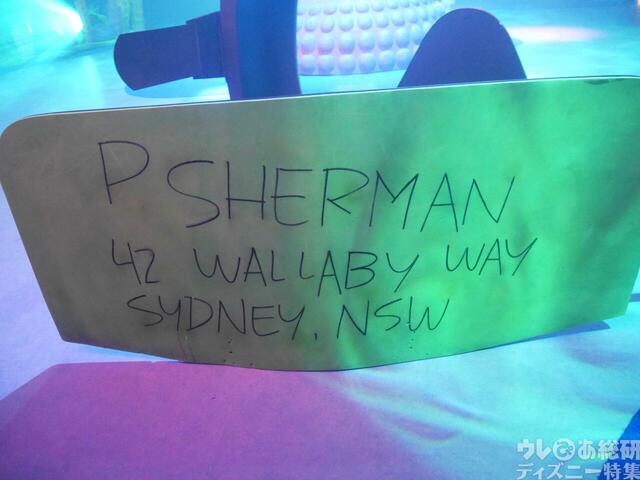 P SHERMAN
42 WALLABY WAY
SYDNEY, NSW
ウレぴあ総研
ディズニー特集